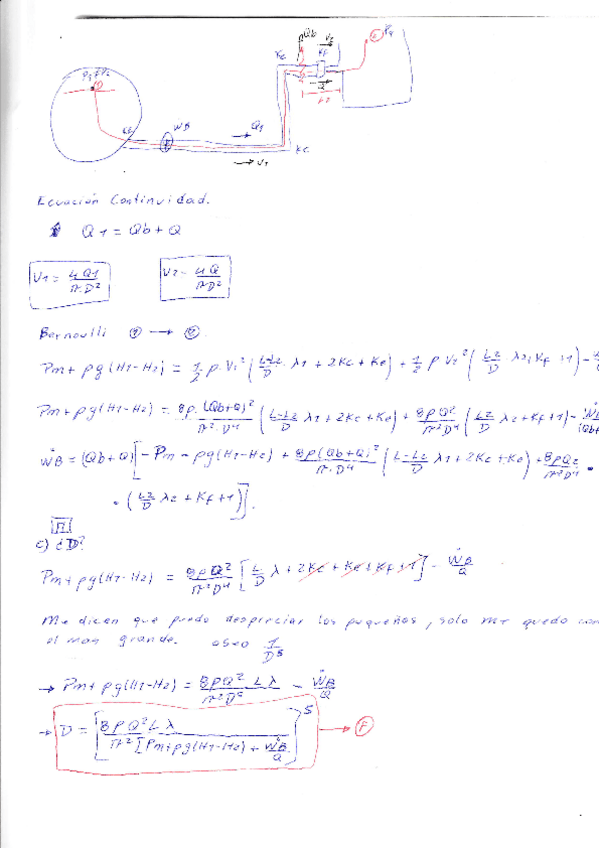 Qb V2
P1=Pm Kc Kf P2
Ke WB Q1 Q
L2
V1 Kc
Ecuación Continuidad.
Q1 = Qb + Q
V1 = 4Q1/π·D² V2 = 4Q/πD²
Bernoulli ① → ②.
Pm + ρg(H1-H2) = 1/2 ρ·V1² (L-L2/D · λ1 + 2Kc + Ke) + 1/2 ρ V2² (L2/D · λ2 + Kf + 1) -
Pm + ρg(H1-H2) = 8ρ·(Qb+Q)²/π²·D⁴ (L-L2/D λ1 + 2Kc + Ke) + 8ρQ²/π²D⁴ (L2/D λ2 + Kf + 1) - ẆB/(Qb+
ẆB = (Qb+Q) [-Pm - ρg(H1-H2) + 8ρ(Qb+Q)²/π·D⁴ (L-L2/D λ1 + 2Kc + Ke) + 8ρQ2/π²D⁴ •
• (L2/D λ2 + Kf + 1)].
c) ¿D?
Pm + ρg(H1-H2) = 8ρQ²/π²D⁴ [L/D λ + 2Kc + Ke + Kf + 1] - ẆB/Q
Me dicen que puedo despreciar los pequeños, solo me quedo con
el mas grande. oseo 1/D⁵
→ Pm + ρg(H1-H2) = 8ρQ² L λ/π²D⁵ - ẆB/Q
→ D = [8ρQ²Lλ/π²[Pm+ρg(H1-H2) + ẆB/Q]]⁵ → F